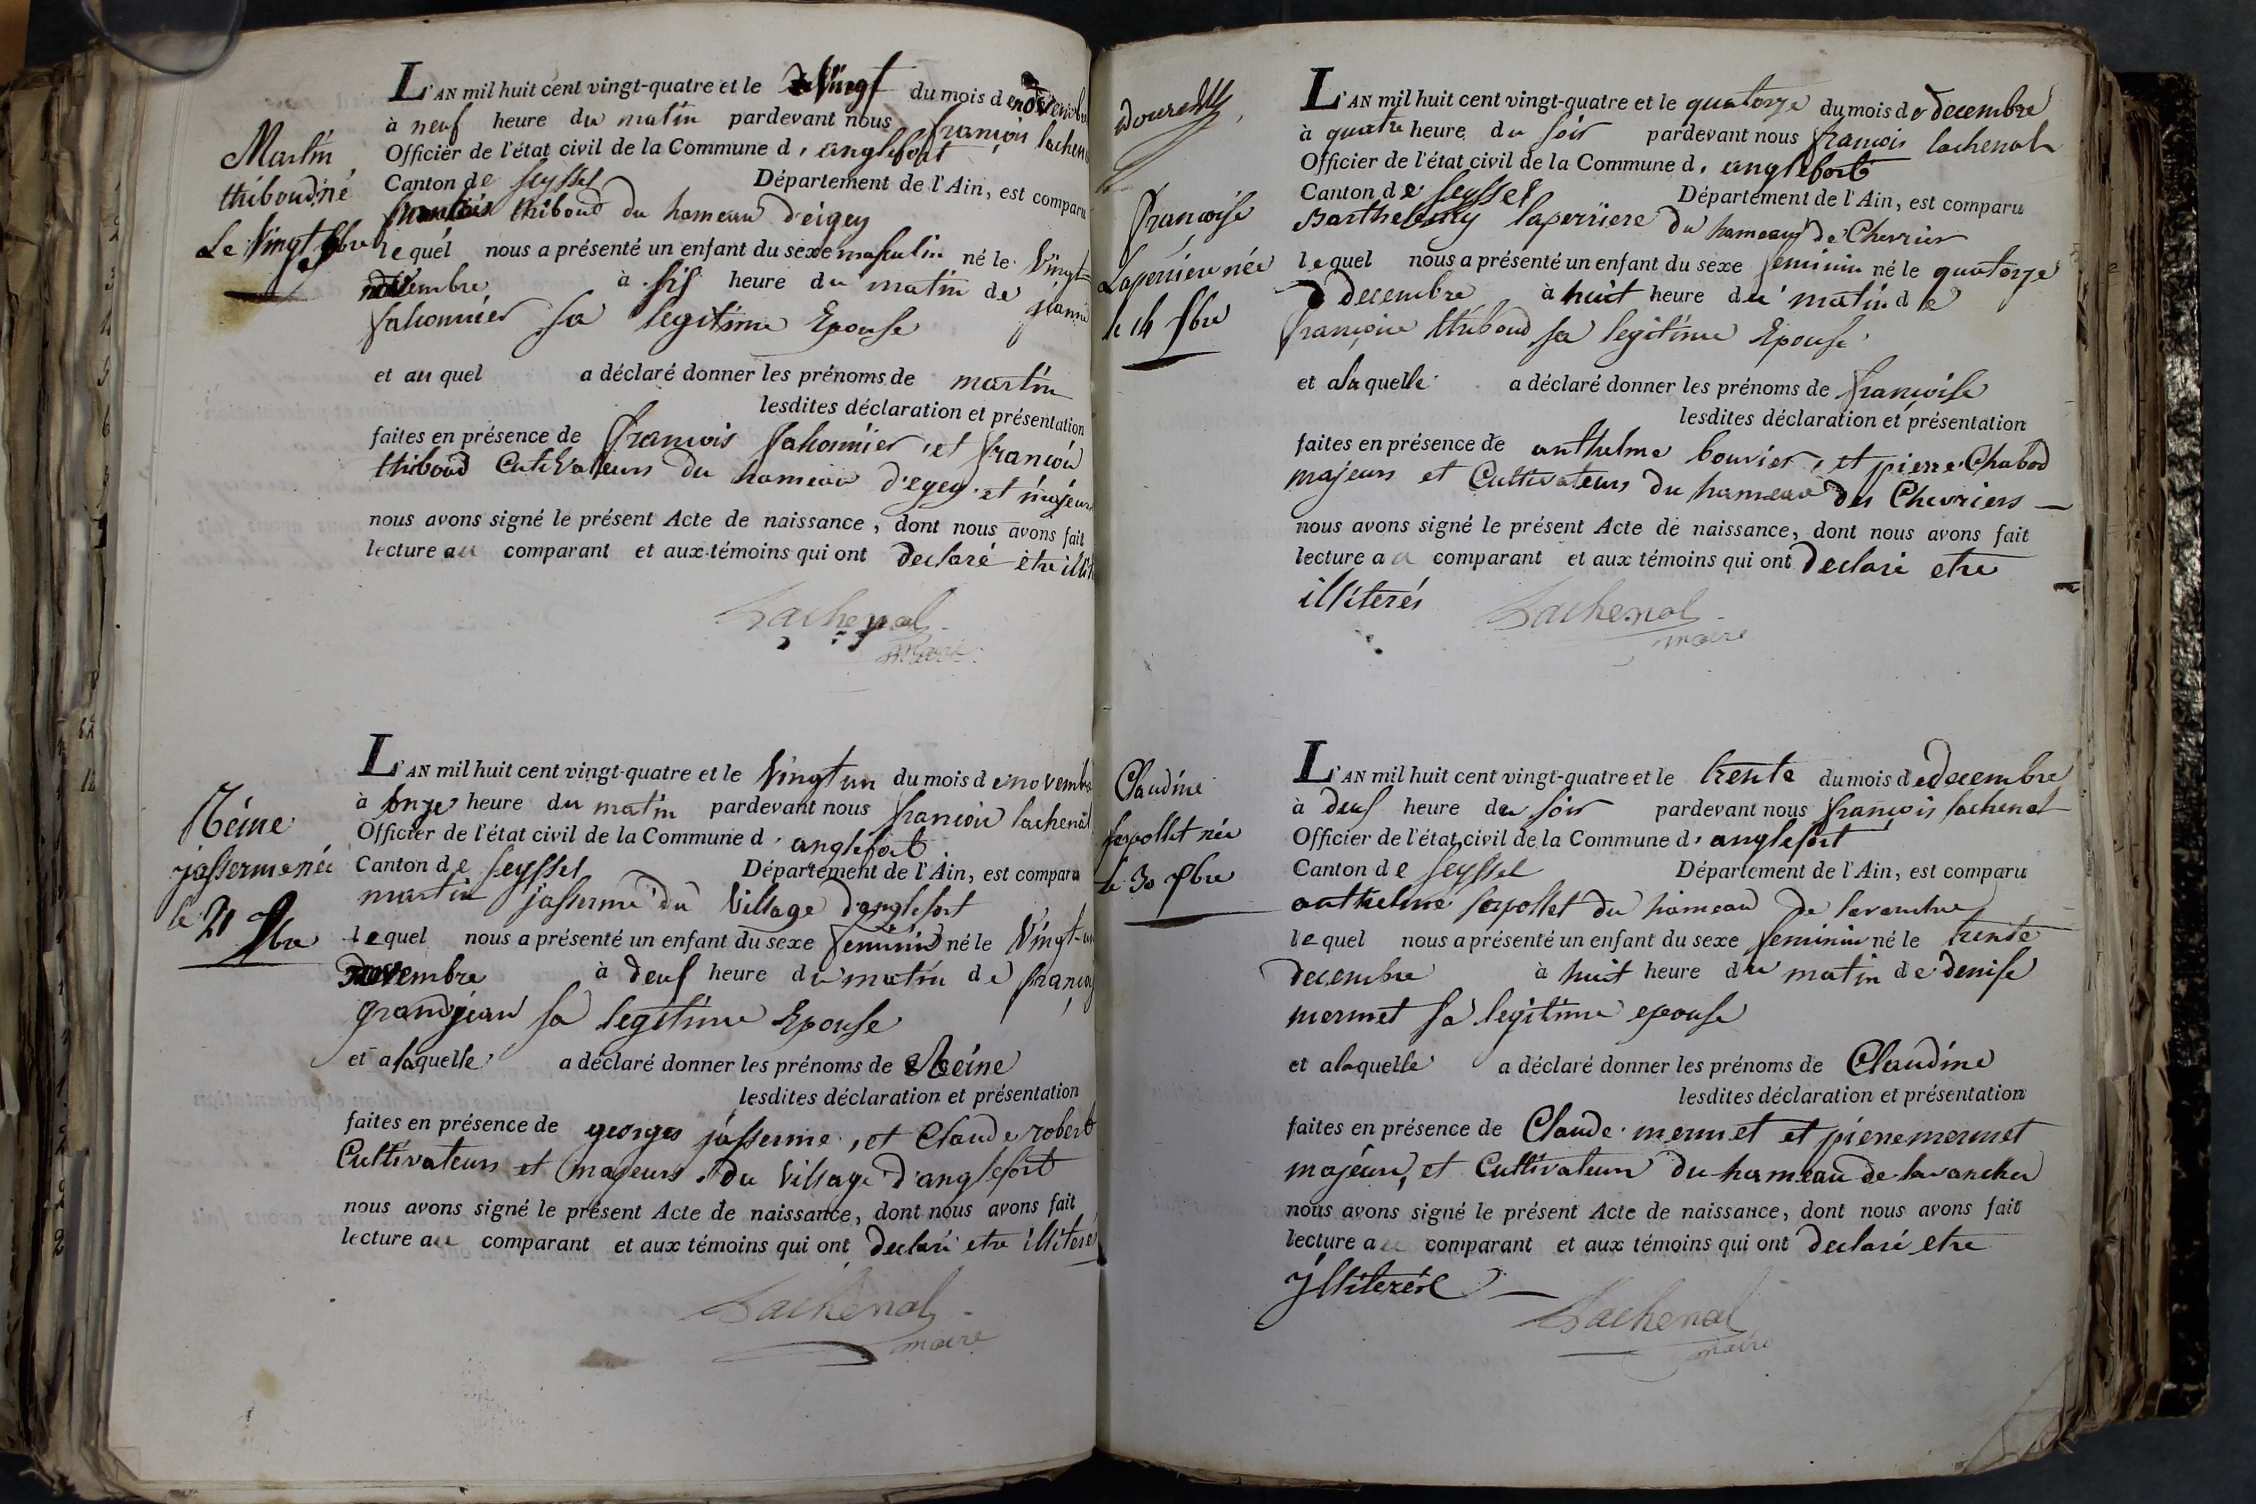 Martin
thiboud né
Le Vingt 9bre
L'AN mil huit cent vingt-quatre et le Vingt du mois de novembre
à neuf heure du matin pardevant nous françois lachenal
Officier de l'état civil de la Commune d'anglefort
Canton de seyssel Département de l'Ain, est comparu
thiboud du hameau d'eigey
lequel nous a présenté un enfant du sexe masculin né le Vingt
novembre à sis heure du matin de jeanne
sa legitime Epouse
et au quel a déclaré donner les prénoms de martin
lesdites déclaration et présentation
faites en présence de françois et françois
thiboud Cultivateurs du hameau d'eyey et majeurs
nous avons signé le présent Acte de naissance, dont nous avons fait
lecture au comparant et aux témoins qui ont declaré être
Lachenal
maire
Réine
jasserme née
le 21 9bre
L'AN mil huit cent vingt-quatre et le Vingt un du mois de novembre
à onze heure du matin pardevant nous françois lachenal
Officier de l'état civil de la Commune d'anglefort
Canton de seyssel Département de l'Ain, est comparu
martin jasserme du Village d'anglefort
lequel nous a présenté un enfant du sexe feminin né le Vingt-un
novembre à deus heure du matin de
grandjean sa legitime Epouse
et a laquelle a déclaré donner les prénoms de Réine
lesdites déclaration et présentation
faites en présence de georges jasserme, et Claude robert
Cultivateurs et majeurs du Village d'anglefort
nous avons signé le présent Acte de naissance, dont nous avons fait
lecture au comparant et aux témoins qui ont declaré etre illiterés
Lachenal
maire
françoise
Laperriere née
le 14 Xbre
L'AN mil huit cent vingt-quatre et le quatorze du mois de decembre
à quatre heure du soir pardevant nous françois lachenal
Officier de l'état civil de la Commune d'anglefort
Canton de seyssel Département de l'Ain, est comparu
Barthelemy laperriere du hameau de Chevrier
lequel nous a présenté un enfant du sexe feminin né le quatorze
decembre à huit heure du matin de
françoise thiboud sa legitime Epouse
et a laquelle a déclaré donner les prénoms de françoise
lesdites déclaration et présentation
faites en présence de anthelme bouvier, et pierre Chabod
majeurs et Cultivateurs du hameau des Chevriers
nous avons signé le présent Acte de naissance, dont nous avons fait
lecture au comparant et aux témoins qui ont declaré etre
illiterés
Lachenal
maire
Claudine
serpollet née
le 30 Xbre
L'AN mil huit cent vingt-quatre et le trente du mois de decembre
à deus heure du soir pardevant nous françois lachenal
Officier de l'état civil de la Commune d'anglefort
Canton de seyssel Département de l'Ain, est comparu
anthelme serpollet du hameau de
lequel nous a présenté un enfant du sexe feminin né le trente
decembre à huit heure du matin de denise
mermet sa legitime epouse
et a laquelle a déclaré donner les prénoms de Claudine
lesdites déclaration et présentation
faites en présence de Claude mermet et pierre mermet
majeurs, et Cultivateurs du hameau de lavancher
nous avons signé le présent Acte de naissance, dont nous avons fait
lecture au comparant et aux témoins qui ont declaré etre
Lachenal
maire